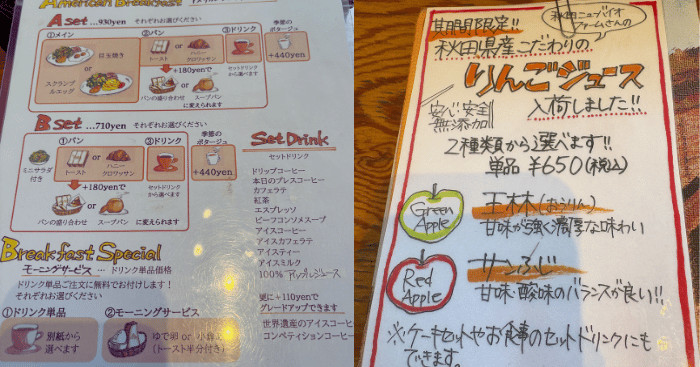 American Breakfast
A set ...930yen それぞれお選びください
①メイン
目玉焼き
or
スクランブル
エッグ
②パン
トースト
or
ハニー
クロワッサン
+180yenで
パンの盛り合わせ
or
スープパン
に変えられます
③ドリンク
セットドリンク
から選べます
季節の
ポタージュ
+440yen
B set ...710yen それぞれお選びください
ミニサラダ
付き
①パン
トースト
or
ハニー
クロワッサン
+180yenで
パンの盛り合わせ
or
スープパン
に変えられます
③ドリンク
セットドリンク
から選べます
季節の
ポタージュ
+440yen
Set Drink
セットドリンク
ドリップコーヒー
本日のプレスコーヒー
カフェラテ
紅茶
エスプレッソ
ビーフコンソメスープ
アイスコーヒー
アイスカフェラテ
アイスティー
アイスミルク
100% アップルジュース
更に+110yenで
グレードアップできます
世界遺産のアイスコーヒー
コンペティションコーヒー
Breakfast Special
モーニングサービス … ドリンク単品価格
ドリンク単品ご注文に無料でお付けします！
それぞれお選びください
①ドリンク単品
別紙から
選べます
②モーニングサービス
ゆで卵 or 小倉
(トースト半分付き)
期間限定!!
秋田ニューバイオ
ファームさんの
秋田県産こだわりの
りんごジュース
安心・安全
無添加
入荷しました!!
2種類から選べます!!
単品 ¥650(税込)
Green
Apple
王林(おうりん)
甘味が強く濃厚な味わい
Red
Apple
サンふじ
甘味・酸味のバランスが良い!!
※ケーキセットやお食事のセットドリンクにも
できます。